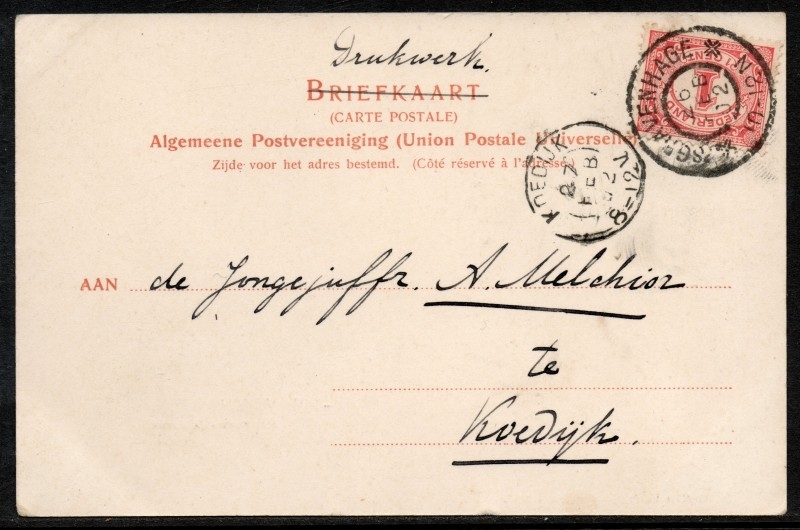 Drukwerk.
BRIEFKAART
(CARTE POSTALE)
Algemeene Postvereeniging (Union Postale Universelle)
Zijde voor het adres bestemd. (Côté réservé à l'adresse.)
'SGRAVENHAGE
FEB
02
NEDERLAND
1
KOEDIJK
27
FEB
02
AAN de Jongejuffr. A. Melchior
te
Koedijk.